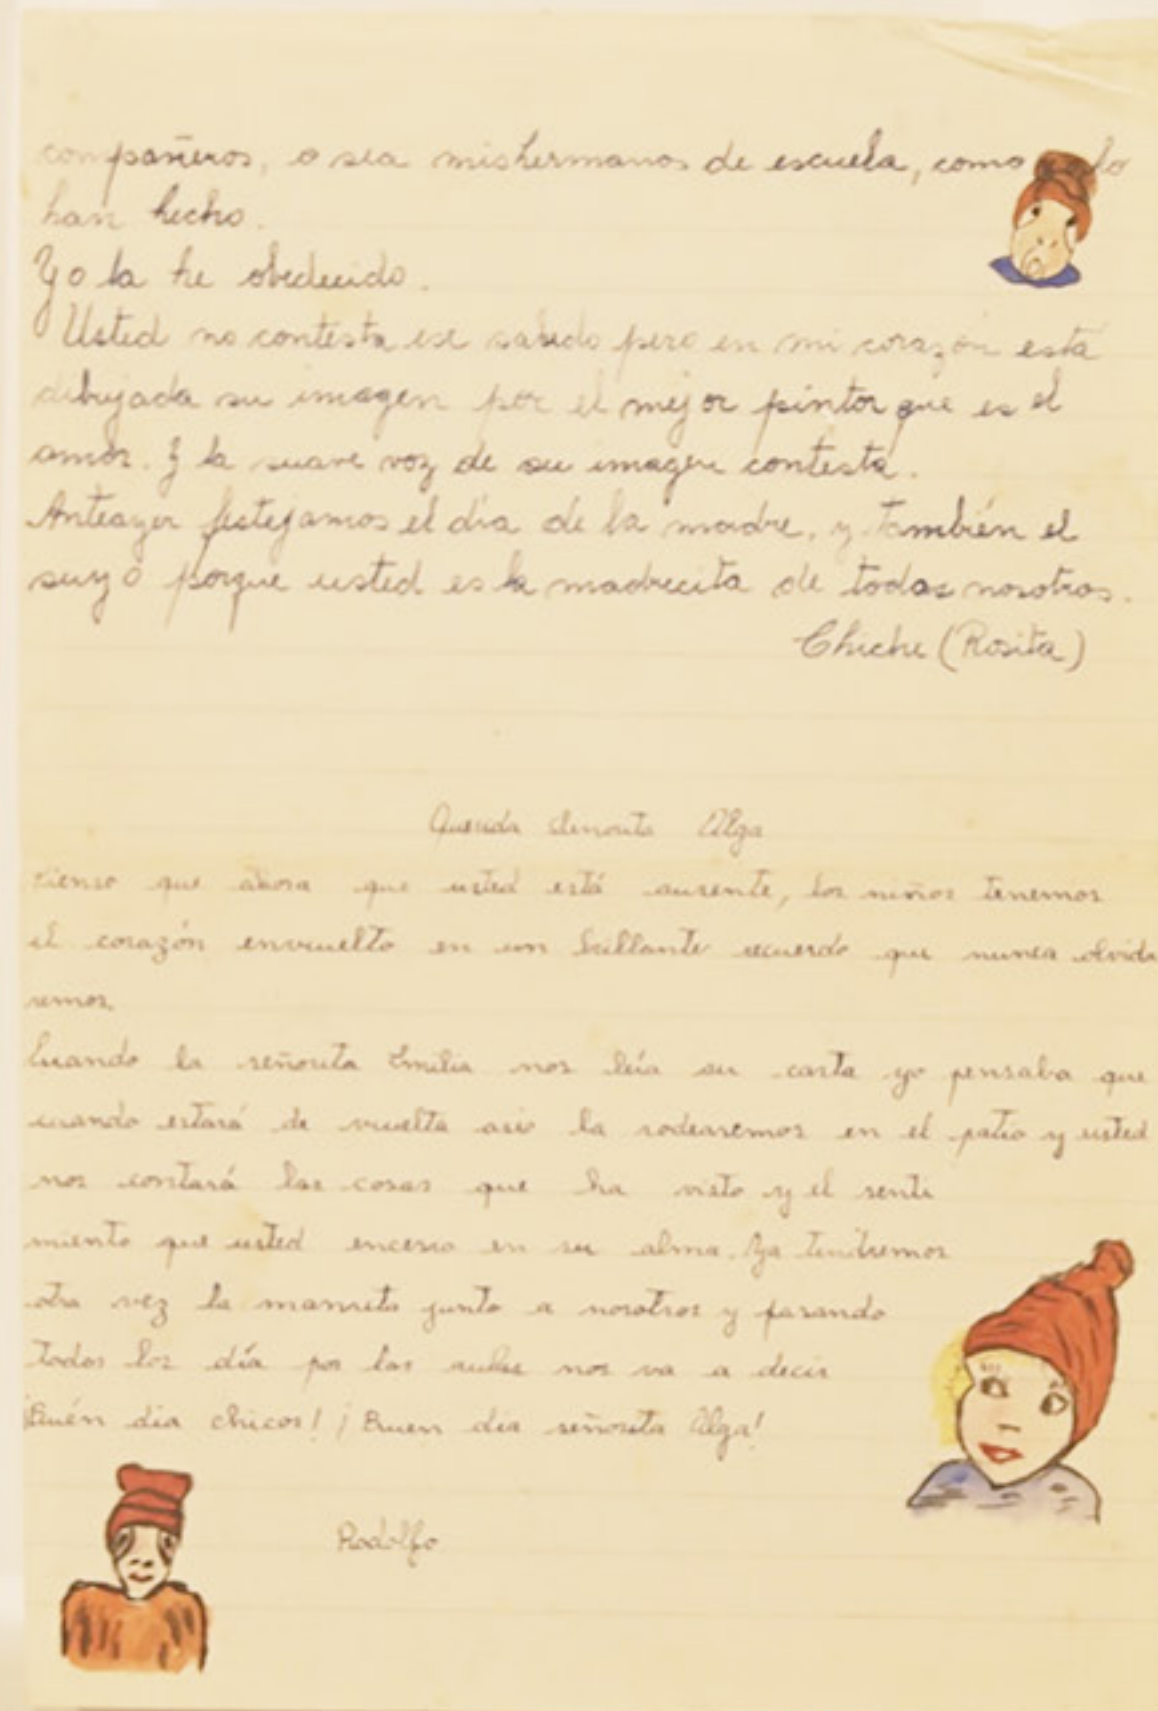 compañeros, o sea mis hermanos de escuela, como lo
han hecho.
Yo la he obedecido.
Usted no contesta ese saludo pero en mi corazón está
dibujada su imagen por el mejor pintor que es el
amor. Y la suave voz de su imagen contesta.
Anteayer festejamos el día de la madre, y también el
suyo porque usted es la madrecita de todos nosotros.
Chiche (Rosita)
Querida Señorita Olga
Pienso que ahora que usted está ausente, los niños tenemos
el corazón envuelto en un brillante recuerdo que nunca olvida
remos.
Cuando la señorita Emilia nos leía su carta yo pensaba que
cuando estará de vuelta así la rodearemos en el patio y usted
nos contará las cosas que ha visto y el senti
miento que usted encerro en su alma. Ya tendremos
otra vez la mamita junto a nosotros y pasando
todos los día por las aulas nos va a decir
¡Buén dia chicos! ¡Buen dia señorita Olga!
Rodolfo